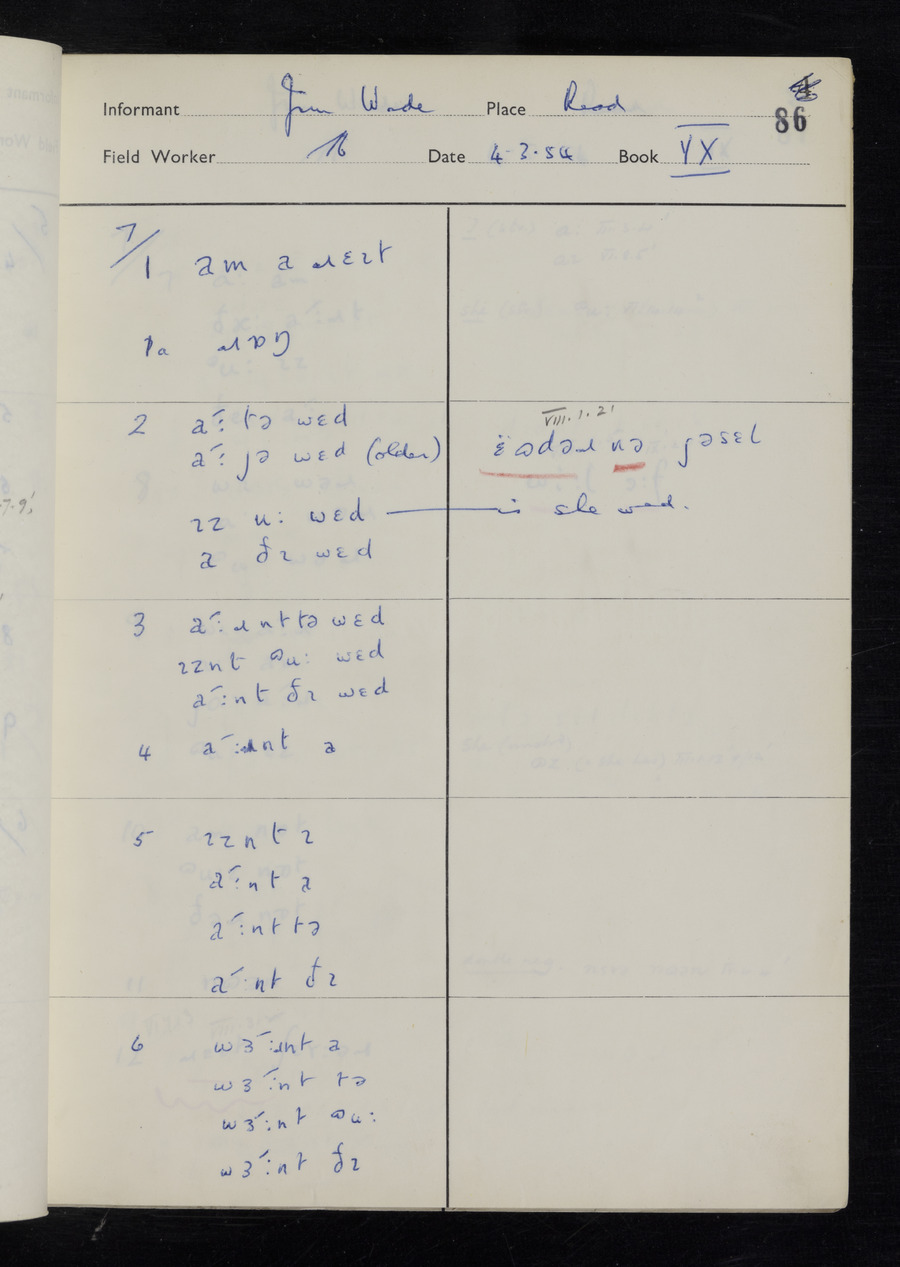 Informant Jim Wade Place Read
86
Field Worker Date 4-3-54 Book IX
7/
1 am a ɹɛɪt
1a
2 a˔ː tə wɛd
a˔ː jə wɛd (older)
ɪz uː wɛd — is she wed.
a ðɪ wɛd
VIII.1.21
nə jəsɛl
3 a˔ːɹnt tə wɛd
ɪznt əuː wɛd
a˔ːnt ðɪ wɛd
4 a˔ːɹnt a
5 ɪznt ɪ
a˔ːnt a
a˔ːnt tə
a˔ːnt ðɪ
6 wɜ˔ːɹnt a
wɜ˔ːnt tə
wɜ˔ːnt əuː
wɜ˔ːnt ðɪ